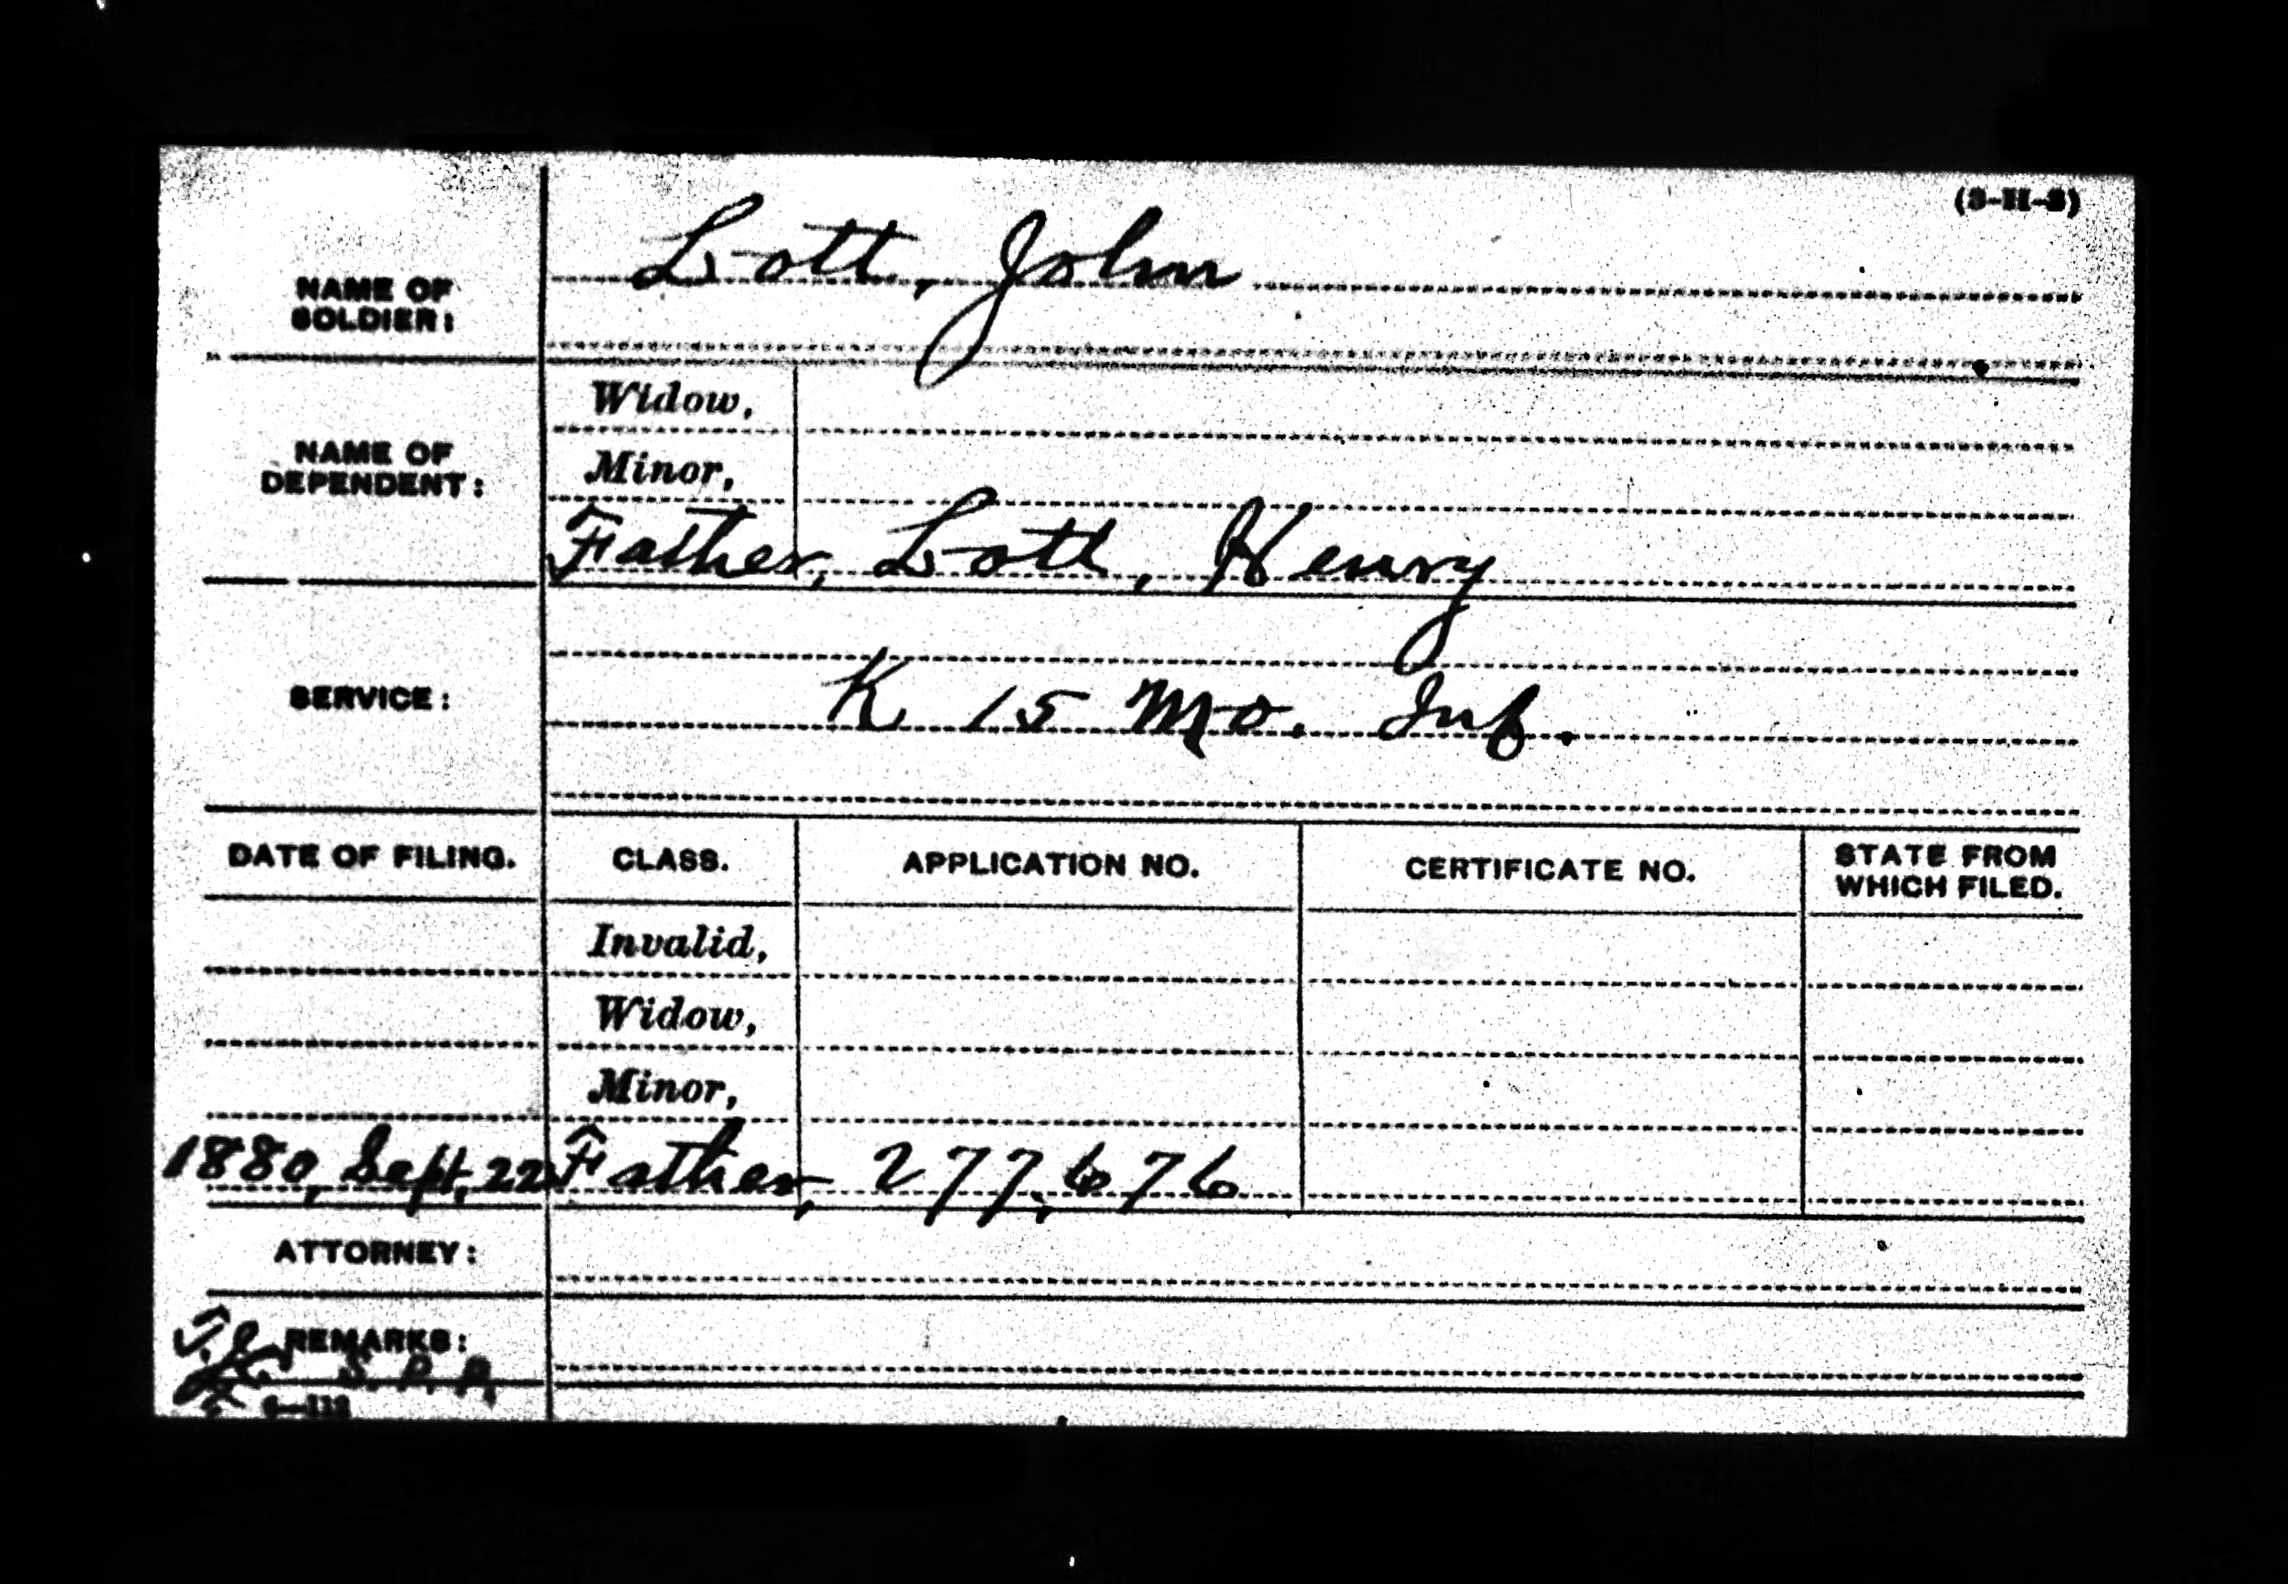 (3-H-3)
NAME OF SOLDIER: Lott, John
NAME OF DEPENDENT:
Widow,
Minor,
Father, Lott, Henry
SERVICE: K 15 Mo. Inf.
DATE OF FILING. CLASS. APPLICATION NO. CERTIFICATE NO. STATE FROM WHICH FILED.
Invalid,
Widow,
Minor,
1880, Sept, 22 Father, 277,676
ATTORNEY:
REMARKS: